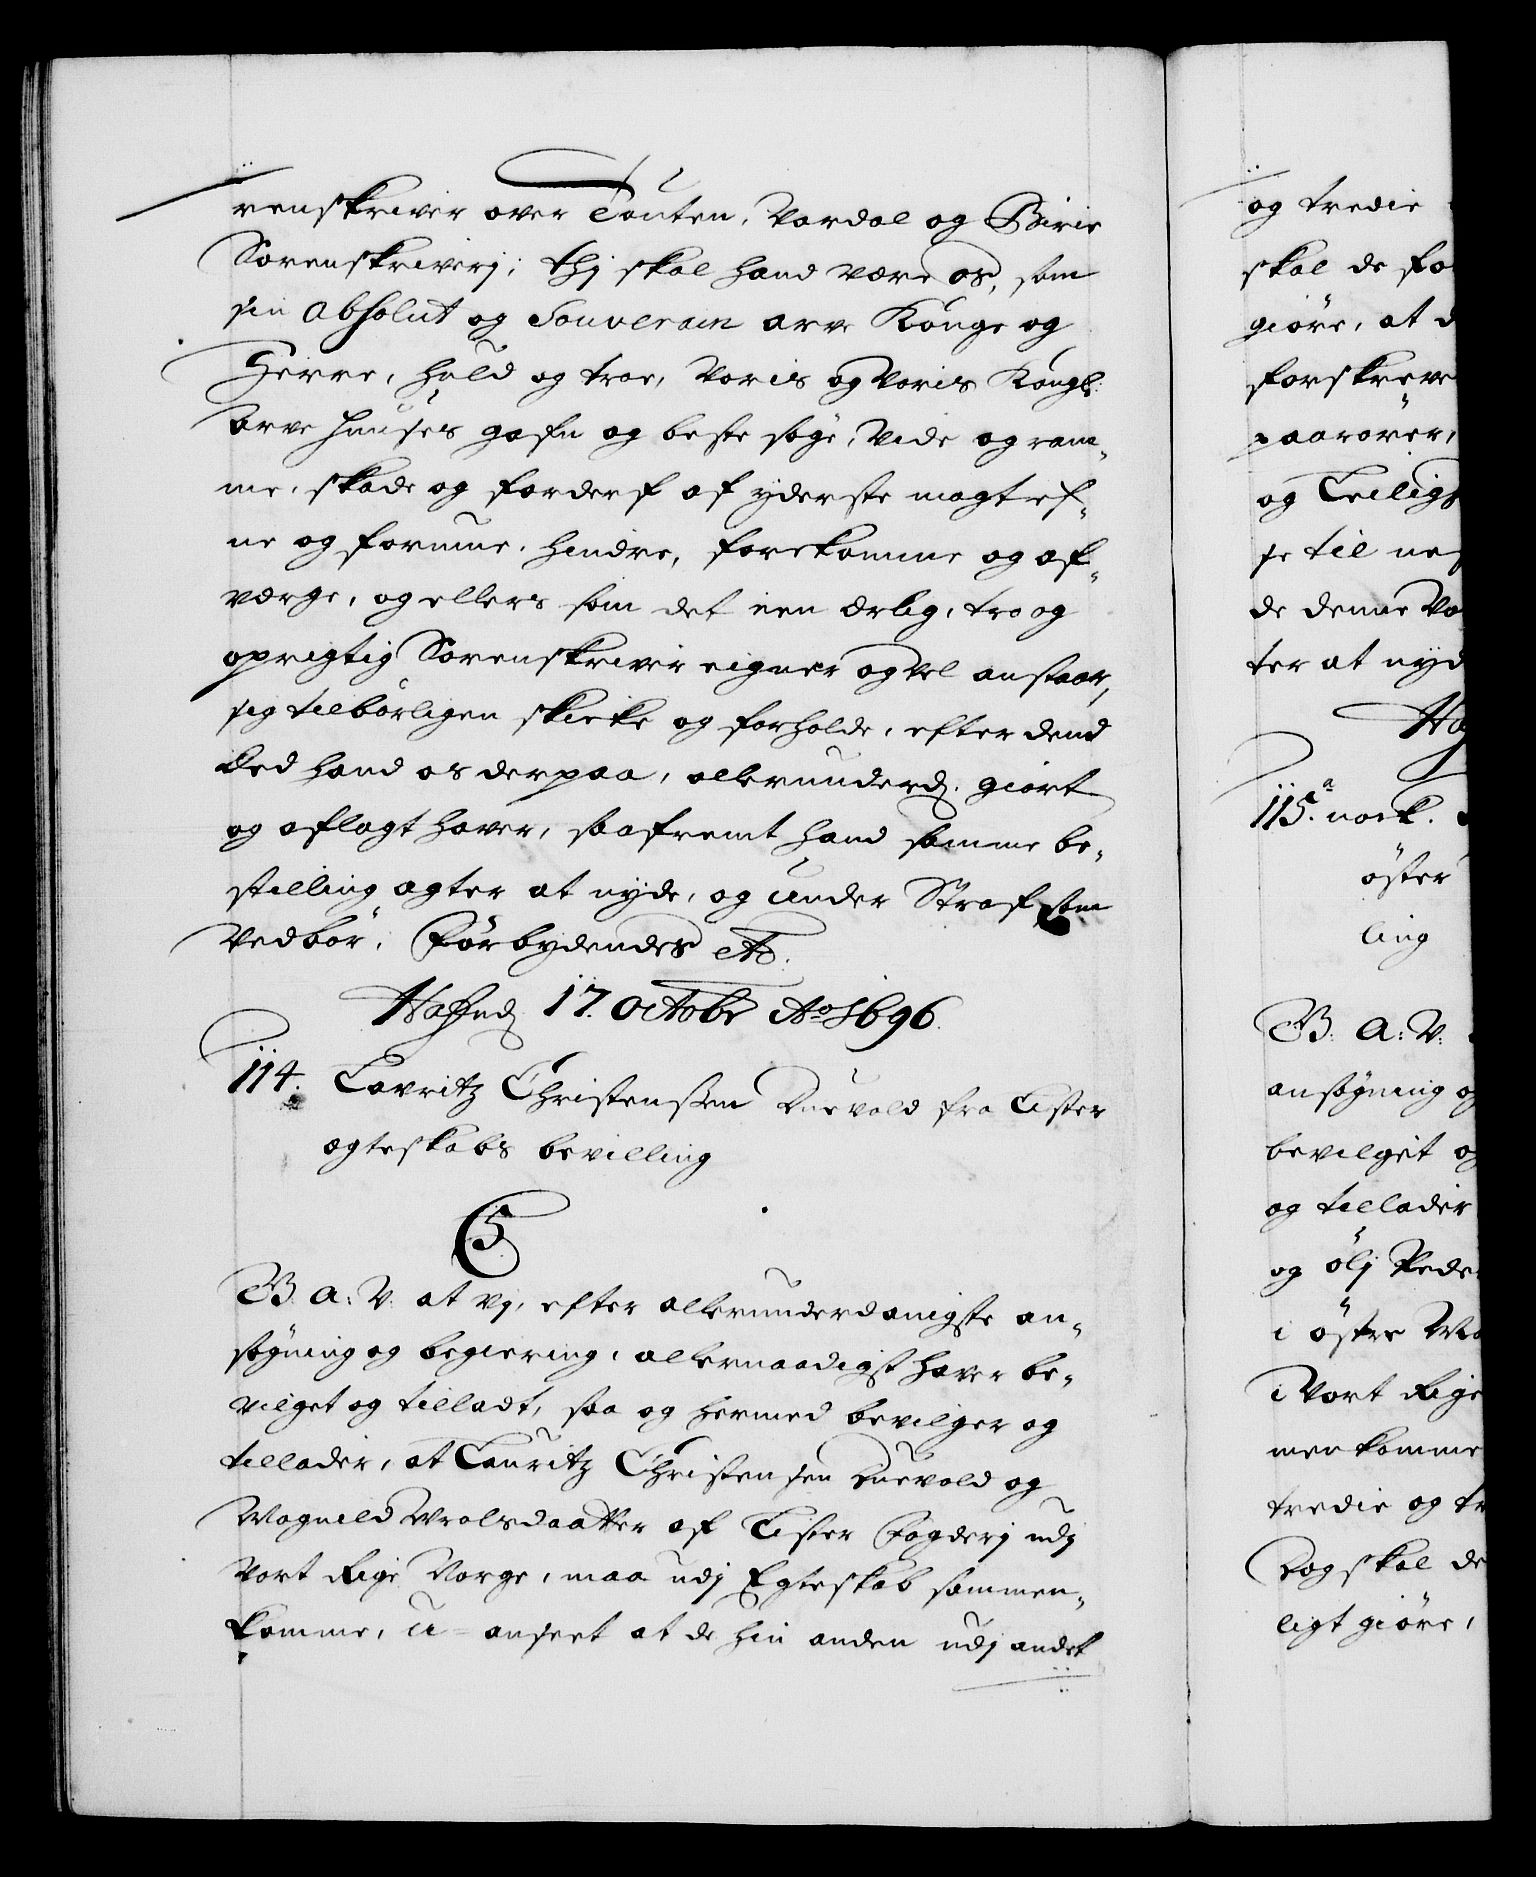 renskriver over Touten, Vardal og Birie
Sorenskriverj; thj skal hand være os, som
sin absolut og Souverain arve Konge og
Herre, huld og troe, Voris og Voris Kongl:
Arve Huuses gafn og beste søge, Vide og ram-
me, skade og forderf af yderste magt ef-
ne og formue, hindre, forekomme og af-
værge, og ellers som det een ærlig, tro og
oprigtig Sorenskriver eigner og vel anstaar,
sig tilbørligen skicke og forholde, efter dend
Eed hand os derpaa, allerunderd. giort
og aflagt haver, saafremt hand samme be-
stilling agter at nyde, og under Straf som
Vedbør, Forbydendes etc.
Hafnd 17. Octobr Ao 1696.
114. Lavritz Christenssen Duevold fra Lister
ægteskabs bevilling
C5
G. A: V. at Vj, efter allerunderdanigste an-
søgning og begiering, allernaadigst haver be-
vilget og tilladt, saa og hermed bevilger og
tillader, at Lauritz Christensen Duevold og
Magnild Wralsdaatter af Lister Fogderj udj
Vort Rige Norge, maa udj Egteskab sammen-
komme, u-anseet at de hin anden udj andet
og tredie
skal de fo
giøre, at d
forskreve
paarører,
og Leilig
se til ne
de denne Vo
ter at nyd
Ha
115. a Norsk.
Øster
ling
G. A: V:
ansøgning og
bevilget og
og tillader
og Olj Peder
i østre
i Vort Rige
menkomme
tredie og tr
Dog skal de
ligt giøre,